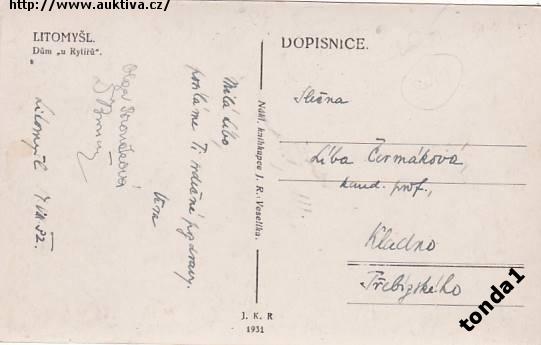 http://www.auktiva.cz/
LITOMYŠL.
Dům „u Rytířů“.
DOPISNICE.
Milá Líbo,
posíláme Ti srdečné pozdravy.
Věra
Olga
Litomyšl 7. VII. 32.
Nákl. knihkupce J. R. Veselíka.
Slečna
Líba Čermáková,
kand. prof.,
Kladno
Třebízského
J. K. R
1931
tonda1